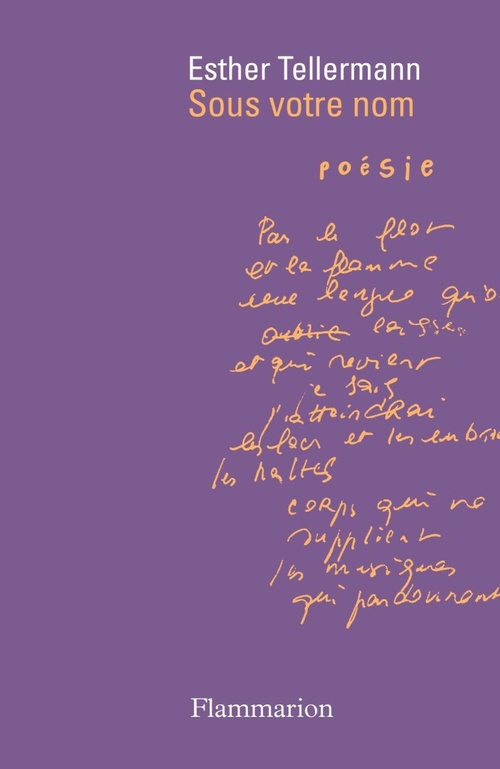 Esther Tellermann
Sous votre nom
poésie
Par le flot
et la flamme
une langue qu'o
oublie laisse
et qui revient
je sais
j'atteindrai
les lacs et les
les haltes
corps qui ne
supplient
les musiques
qui
Flammarion